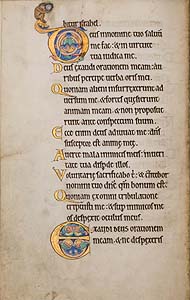 bitur israhel.
Deus in nomine tuo saluu
me fac: & in uirtute
tua iudica me.
Deus exaudi orationem meam: au
ribus percipe uerba oris mei.
Quoniam alieni insurrexerunt ad
uersum me. & fortes quesierunt
animam meam: & non proposue
runt deum ante conspectum suum.
Ecce enim deus adiuuat me: & dns
susceptor est anime mee.
Auerte mala inimicis meis: in ueri
tate tua disperde illos.
Voluntarie sacrificabo t: & confitebor
nomini tuo dne qm bonum est.
Qm ex omni tribulatione
eripuisti me: & super inimicos meos
despexit oculus meus.
Exaudi deus orationem
meam: & ne despexeris